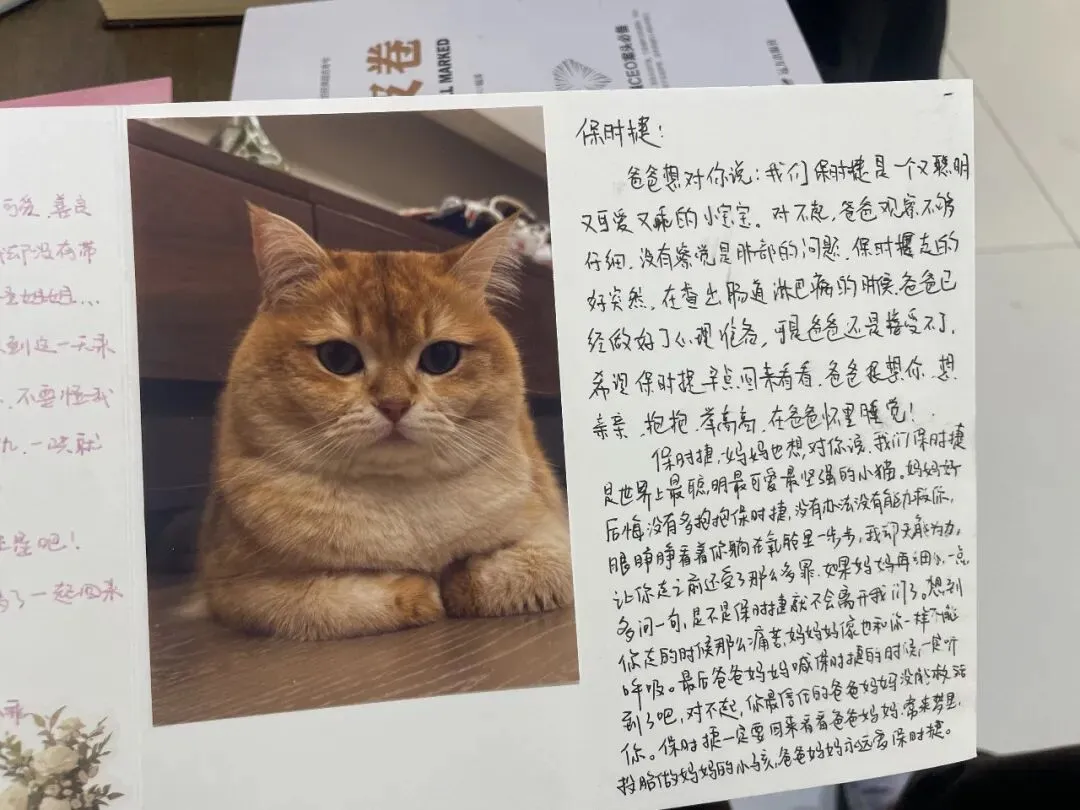 可爱 善良
却没有带
到这一天来
不要怪我
一起回来
ALL MARKED
CEO案头必备
保时捷：
爸爸想对你说：我们保时捷是一个又聪明
又可爱又乖的小宝宝。对不起，爸爸观察不够
仔细，没有察觉是肺部的问题，保时捷走的
好突然，在查出肠道淋巴癌的时候，爸爸已
经做好了心理准备，可是爸爸还是接受不了，
希望保时捷早点回来看看，爸爸很想你，想
亲亲，抱抱，举高高，在爸爸怀里睡觉！
保时捷，妈妈也想对你说，我们保时捷
是世界上最聪明最可爱最坚强的小猫。妈妈好
后悔没有多抱抱保时捷，没有办法没有能力救你，
眼睁睁看着你躺在氧舱里一步步，我却无能为力，
让你走之前还受了那么多罪，如果妈妈再细心一点
多问一句，是不是保时捷就不会离开我们了。想到
你走的时候那么痛苦，妈妈好像也和你一样不能
呼吸。最后爸爸妈妈喊保时捷的时候，一定听
到了吧，对不起，你最信任的爸爸妈妈没能救活
你。保时捷一定要回来看看爸爸妈妈，常来梦里，
投胎做妈妈的小孩，爸爸妈妈永远爱保时捷。